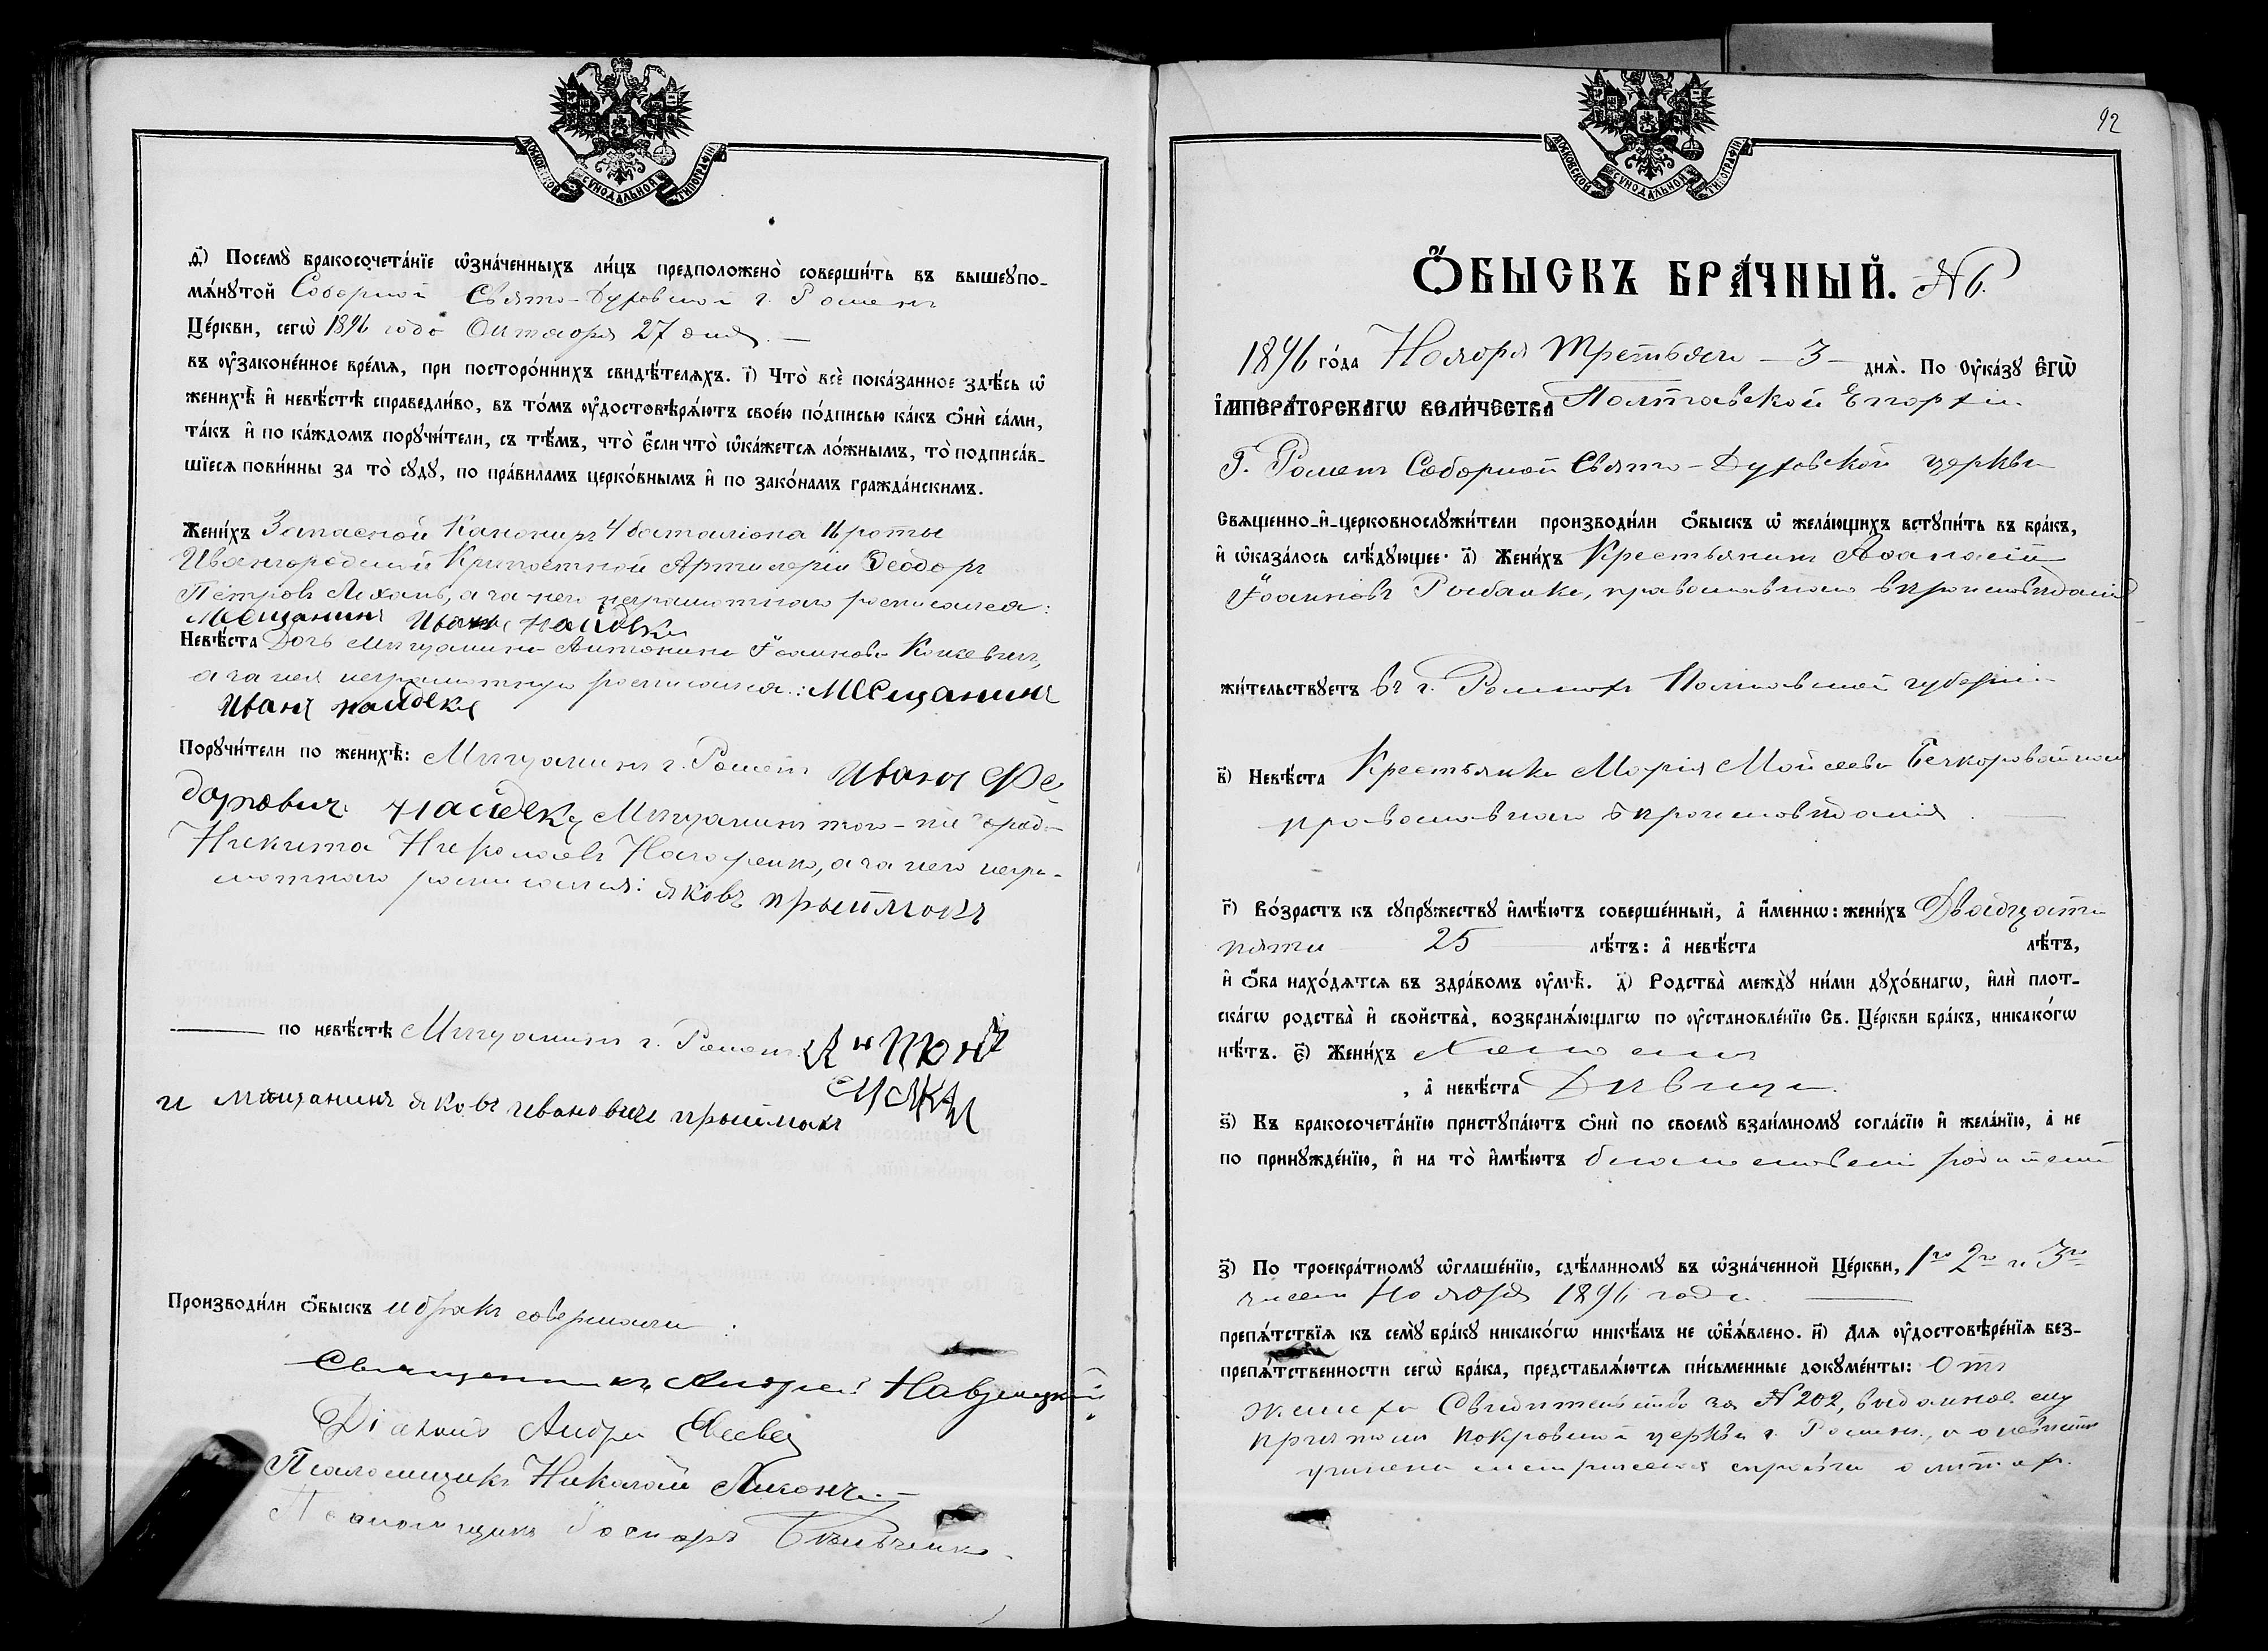 МОСКОВСКОЙ СѴНОДАЛЬНОЙ ТИПОГРАФІИ
д҃) Посемꙋ̀ бракосочета́нїе ѡ҆зна́ченныхъ ли́цъ предположено̀ соверши́ть въ вышеꙋпо-
мѧ́нꙋтой Соборной Свято-Духовской г. Роменъ
Це́ркви, сегѡ̀ 1896 года Октября 27 дня. —
въ ᲂу҆законе́нное вре́мѧ, при посторо́ннихъ свидѣ́телѧхъ. і҃) Что̀ всѐ пока́занное здѣ́сь ѡ҆
женихѣ̀ и҆ невѣ́стѣ справедли́во, въ то́мъ ᲂу҆достовѣрѧ́ютъ свое́ю по́дписью ка́къ ѻ҆нѝ са́ми,
та́къ и҆ по ка́ждомъ порꙋчи́тели, съ тѣ́мъ, что̀ є҆́сли что̀ ѡ҆ка́жетсѧ ло́жнымъ, то̀ подписа́в-
шїесѧ пови́нны за то̀ сꙋдꙋ̀, по пра́виламъ церко́внымъ и҆ по зако́намъ гражда́нскимъ.
Жени́хъ Запасной Канониръ 4 баталіона 16 роты
Ивангородской Крѣпостной Артилеріи Ѳеодоръ
Петровъ Лихань, а за него неграмотнаго росписался:
Мещанинъ Иванъ Насідекъ
Невѣ́ста Дочь мѣщанина Антонина Іоаннова
а за нея неграмотную росписался: Мещанинъ
Иванъ насідекъ
Порꙋчи́тели по женихѣ̀: Мѣщанинъ г. Роменъ Иванъ Фе
доровичъ насідекъ Мѣщанинъ того-же города
Никита Николаевъ Назаренко, а за него негра-
мотнаго росписался: яковъ прыймакъ
по невѣ́стѣ Мѣщанинъ г. Роменъ Антонъ
и мещанинъ яковъ ивановичъ прыймакъ
Производи́ли ѻ҆́быскъ и бракъ совершали:
Священникъ Андрей
Діаконъ Андрей Евсевс
Псаломщикъ Николай
Псаломщикъ
92
МОСКОВСКОЙ СѴНОДАЛЬНОЙ ТИПОГРАФІИ
Ѻ҆́БЫСКЪ БРА́ЧНЫЙ. №
1896 го́да Ноября Третьяго — 3 — днѧ̀. По ᲂу҆ка́зꙋ Є҆ГѠ̀
І҆МПЕРА́ТОРСКАГѠ ВЕЛИ́ЧЕСТВА Полтавской Епархіи
Г. Роменъ Соборной Свято-Духовской церкви
Свѧще́нно-и҆-церковнослꙋжи́тели производи́ли ѻ҆́быскъ ѡ҆ жела́ющихъ встꙋпи́ть въ бра́къ,
и҆ ѡ҆каза́лось слѣ́дꙋющее: а҃) Жени́хъ Крестьянинъ Аѳанасій
Іоанновъ Рыбалка, православнаго вѣроисповѣданія
жи́тельствꙋетъ въ г. Ромнахъ Полтавской губерніи
в҃) Невѣ́ста Крестьянка Марія Мойсеева Безкоровайная
православнаго вѣроисповѣданія.
г҃) Во́зрастъ къ сꙋпрꙋ́жествꙋ и҆мѣ́ютъ соверше́нный, а҆ и҆́меннѡ: жени́хъ Двадцати
пяти 25 лѣ́тъ: а҆ невѣ́ста лѣ́тъ,
и҆ ѻ҆́ба нахо́дѧтсѧ въ здра́вомъ ᲂу҆мѣ̀. д҃) Родства̀ междꙋ̀ ни́ми дꙋхо́внагѡ, и҆лѝ плот-
ска́гѡ родства̀ и҆ свойства̀, возбранѧ́ющагѡ по ᲂу҆становле́нїю Св. Це́ркви бра́къ, никако́гѡ
нѣ́тъ. є҃) Жени́хъ Холостъ
, а҆ невѣ́ста Дѣвица.
ѕ҃) Къ бракосочета́нїю пристꙋпа́ютъ ѻ҆нѝ по своемꙋ̀ взаи́мномꙋ согла́сїю и҆ жела́нїю, а҆ не
по принꙋжде́нїю, и҆ на то̀ и҆мѣ́ютъ благословеніе родителей
з҃) По троекра́тномꙋ ѡ҆глаше́нїю, сдѣ́ланномꙋ въ ѡ҆зна́ченной Це́ркви, 1го 2го и 3го
чиселъ Ноября 1896 года.
препѧ́тствїѧ къ семꙋ̀ бра́кꙋ никако́гѡ никѣ́мъ не ѡ҆б̾ѧ́влено. и҃) Длѧ ᲂу҆достовѣре́нїѧ без-
препѧ́тственности сегѡ̀ бра́ка, представлѧ́ютсѧ пи́сьменные докꙋме́нты: Отъ
жениха Свидѣтельство за № 202, выданное ему
причтомъ Покровской церкви г. Роменъ, а о невѣстѣ
учинена метрическая справка о лѣтахъ.